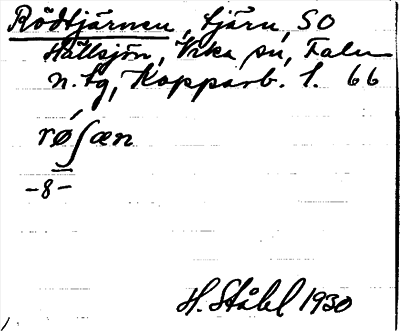 Rödtjärnen, tjärn, SO
Hällsjön, Vika sn, Falu
n. tg, Kopparb. l. 66
rǿʃæn
-8-
H. Ståhl 1930